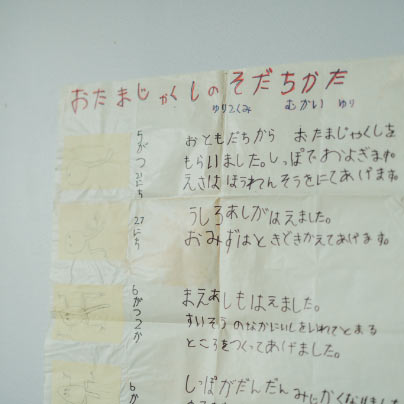 おたまじゃくしのそだちかた
ゆりぐみ むかい ゆり
5がつ21にち
おともだちから おたまじゃくしを
もらいました。しっぽでおよぎます。
えさはほうれんそうをにてあげます。
27にち
うしろあしがはえました。
おみずはときどきかえてあげます。
6がつ2か
まえあしもはえました。
すいそうのなかにいしをいれてとまる
ところをつくってあげました。
6か
しっぽがだんだんみじかくなりました